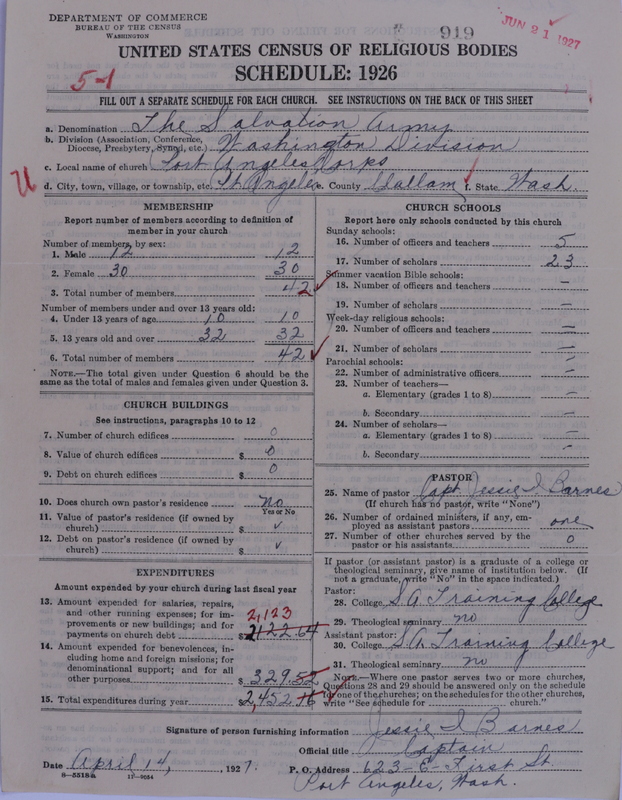 DEPARTMENT OF COMMERCE
BUREAU OF THE CENSUS
WASHINGTON
919
JUN 21 1927
UNITED STATES CENSUS OF RELIGIOUS BODIES
SCHEDULE: 1926
5-1
FILL OUT A SEPARATE SCHEDULE FOR EACH CHURCH. SEE INSTRUCTIONS ON THE BACK OF THIS SHEET
a. Denomination The Salvation Army
b. Division (Association, Conference, Diocese, Presbytery, Synod, etc.) Washington Division
c. Local name of church Port Angeles Corps
U d. City, town, village, or township, etc. Pt Angeles e. County Clallam f. State Wash.
MEMBERSHIP
Report number of members according to definition of
member in your church
Number of members by sex:
1. Male 12 12
2. Female 30 30
3. Total number of members 42
Number of members under and over 13 years old:
4. Under 13 years of age 10 10
5. 13 years old and over 32 32
6. Total number of members 42
NOTE.—The total given under Question 6 should be
same as the total of males and females given under Question 3.
CHURCH BUILDINGS
See instructions, paragraphs 10 to 12
7. Number of church edifices 0
8. Value of church edifices $ 0
9. Debt on church edifices $ 0
10. Does church own pastor's residence No
Yes or No
11. Value of pastor's residence (if owned by
church) $ ✓
12. Debt on pastor's residence (if owned by
church) $ ✓
EXPENDITURES
Amount expended by your church during last fiscal year
13. Amount expended for salaries, repairs,
and other running expenses; for im-
provements or new buildings; and for 2,123
payments on church debt $2122.64
14. Amount expended for benevolences, in-
cluding home and foreign missions; for
denominational support; and for all
other purposes $ 329.52
15. Total expenditures during year $2,452.16
CHURCH SCHOOLS
Report here only schools conducted by this church
Sunday schools:
16. Number of officers and teachers 5
17. Number of scholars 23
Summer vacation Bible schools:
18. Number of officers and teachers —
19. Number of scholars —
Week-day religious schools:
20. Number of officers and teachers —
21. Number of scholars —
Parochial schools:
22. Number of administrative officers —
23. Number of teachers—
a. Elementary (grades 1 to 8) —
b. Secondary —
24. Number of scholars—
a. Elementary (grades 1 to 8) —
b. Secondary —
PASTOR
25. Name of pastor Capt. Jessie I Barnes
(If church has no pastor, write "None")
26. Number of ordained ministers, if any, em-
ployed as assistant pastors one
27. Number of other churches served by the
pastor or his assistants 0
If pastor (or assistant pastor) is a graduate of a college or
theological seminary, give name of institution below. (If
not a graduate, write "No" in the space indicated.)
Pastor:
28. College S A Training College
29. Theological seminary no
Assistant pastor:
30. College S A Training College
31. Theological seminary no
NOTE.—Where one pastor serves two or more churches,
Questions 28 and 29 should be answered only on the schedule
for one of the churches; on the schedules for the other churches,
write "See schedule for church."
Signature of person furnishing information Jessie I Barnes
Official title Captain
Date April 14, 1927. P. O. Address 623-E-First St.
8—5518a 17—9084
Port Angeles, Wash.